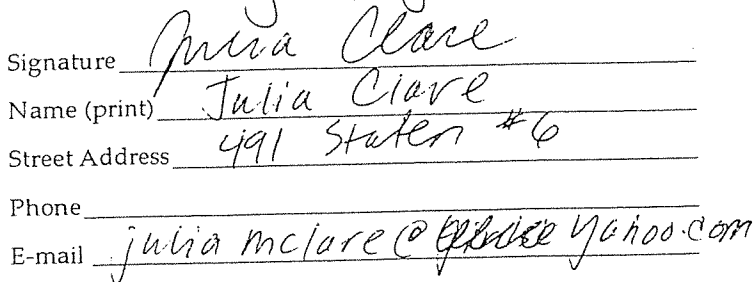 Signature Julia Clare
Name (print) Julia Clare
Street Address 491 Staten #6
Phone
E-mail juliamclare@ yahoo.com